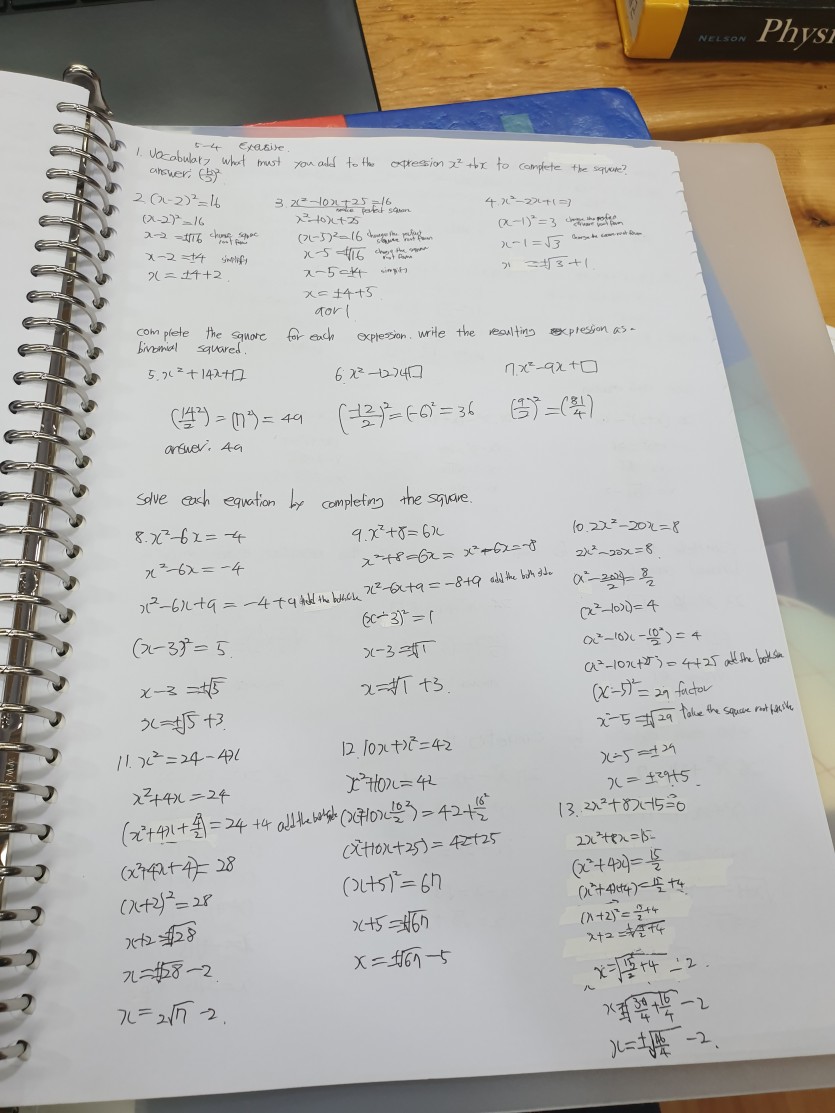 NELSON Physi
5-4 exersise.
1. Vocabulary what must you add to the expression x²+bx to complete the square?
answer: (b/2)²
2. (x-2)²=16
(x-2)²=16
x-2=±√16
x-2=±4 simplify
x=±4+2
3. x²-10x+25=16
perfect square
x²-10x+25
(x-5)²=16 change the perfect square root form
x-5=±√16 change the square root form
x-5=±4 simplify
x=±4+5
9 or 1
4. x²-2x+1=3
(x-1)²=3
x-1=√3
x=±√3+1
complete the square for each expression. write the resulting expression as-
binomial squared.
5. x²+14x+□
(14²/2)=(7²)=49
answer. 49
6. x²-12x+□
(-12/2)²=(-6)²=36
7. x²-9x+□
(9/2)²=(81/4)
solve each equation by completing the square.
8. x²-6x=-4
x²-6x=-4
x²-6x+9=-4+9 add the both side
(x-3)²=5
x-3=±√5
x=±√5+3.
9. x²+8=6x
x²+8=6x= x²-6x=-8
x²-6x+9=-8+9 add the both side
(x-3)²=1
x-3=±√1
x=±√1+3.
10. 2x²-20x=8
2x²-20x=8
(x²-20x/2)=8/2
(x²-10x)=4
(x²-10x-10²/2)=4
(x²-10x+25)=4+25 add the both side
(x-5)²=29 factor
x-5=±√29 Take the square root
x-5=±29
x=±29+5.
11. x²=24-4x
x²+4x=24
(x²+4x+4/2)=24+4 add the both side
(x²+4x+4)=28
(x+2)²=28
x+2=±√28
x=±√28-2
x=2√7-2.
12. 10x+x²=42
x²+10x=42
(x²+10x10²/2)=42+10²/2
(x²+10x+25)=42+25
(x+5)²=67
x+5=±√67
x=±√67-5
13. 2x²+8x-15=0
2x²+8x=15
(x²+4x)=15/2
(x²+4x+4)=15/2+4
(x+2)²=15/2+4
x+2=±√15/2+4
x=√15/2+4-2.
x=±√30/4+16/4-2
x=±√46/4-2.